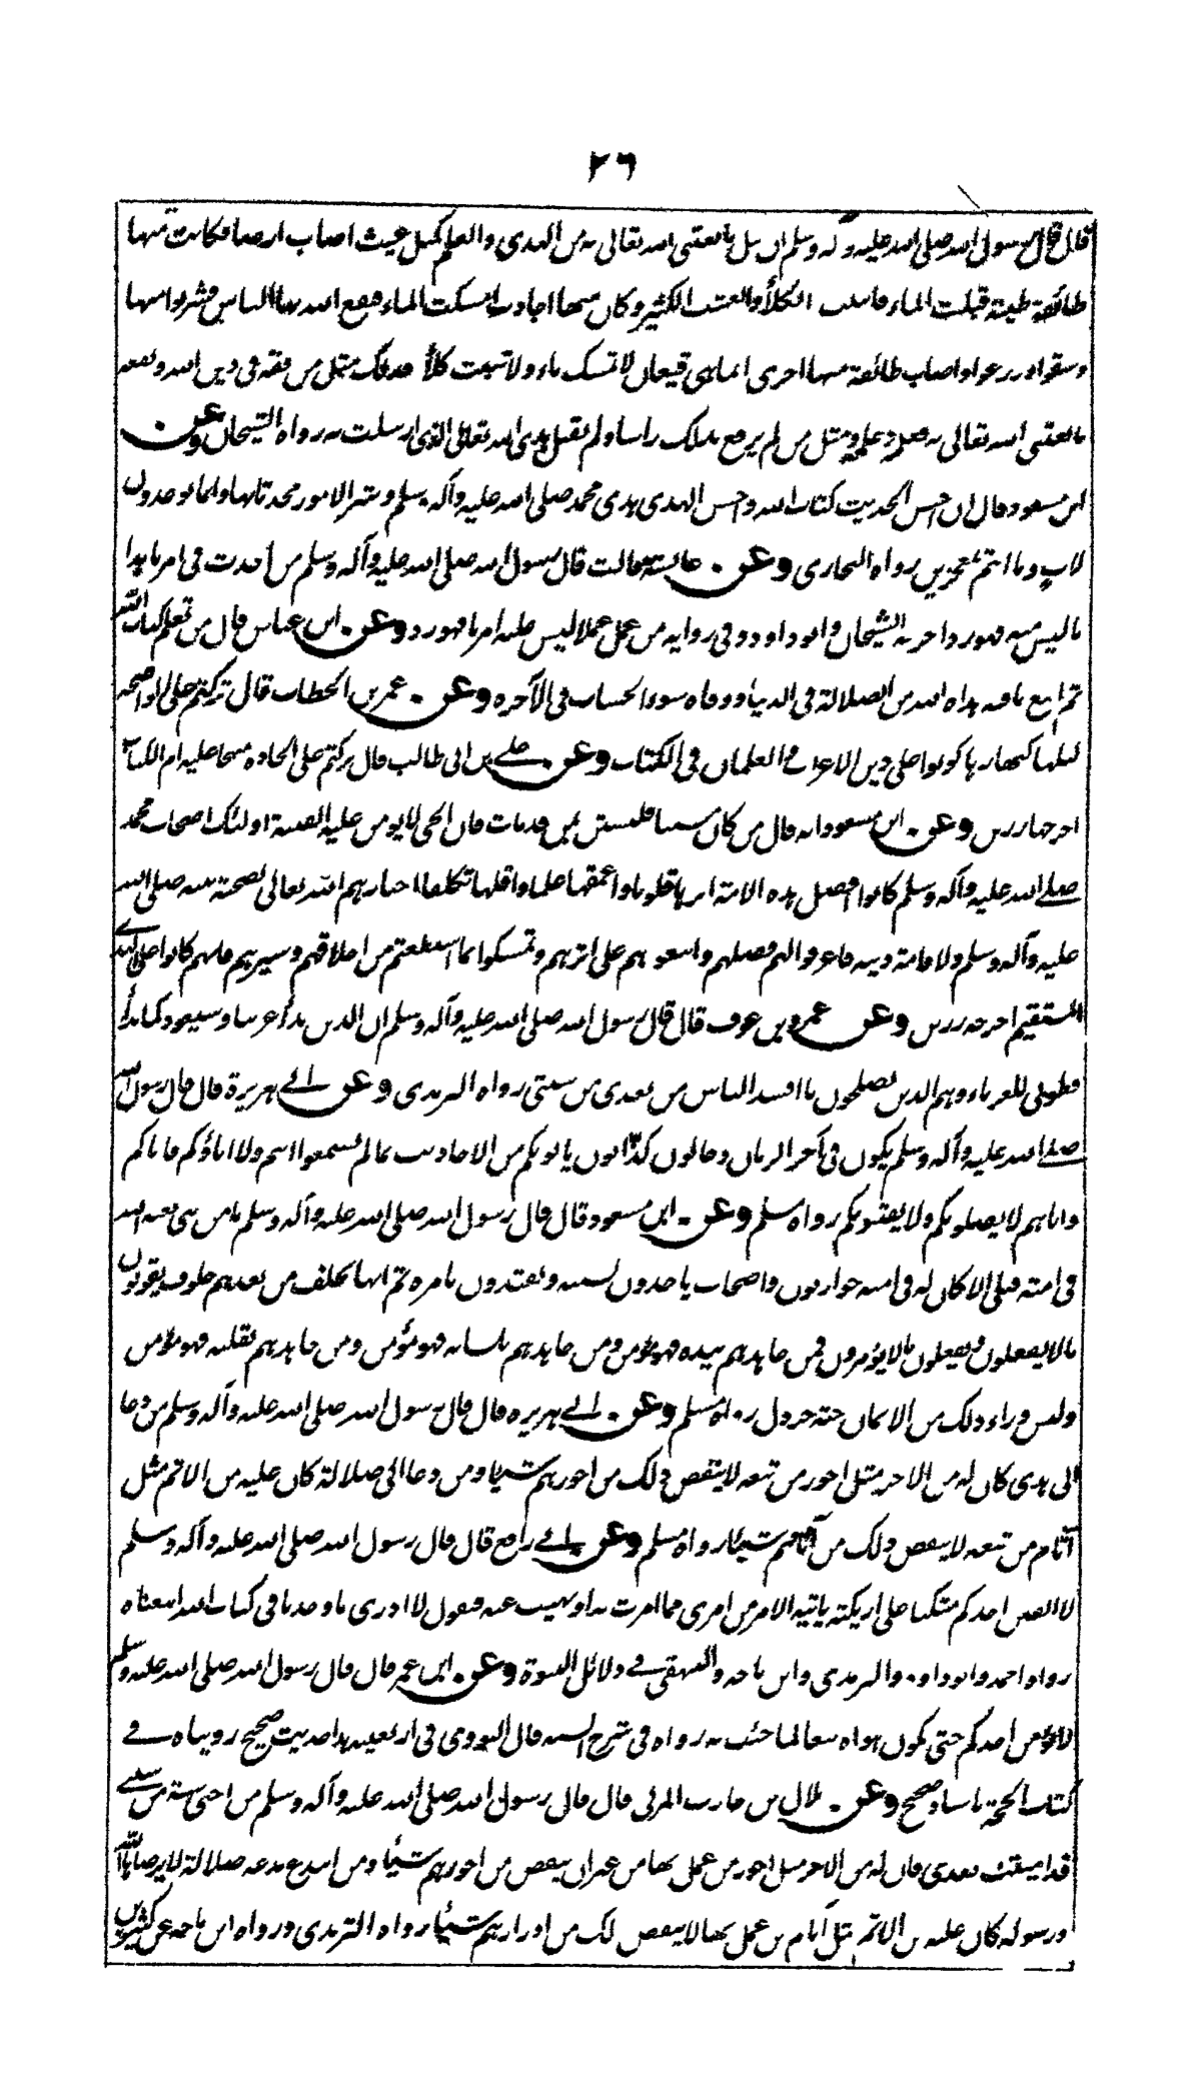 ٢٦
قال قال رسول الله صلى الله عليه وآله وسلم ان مثل ما بعثنى الله تعالى به من الهدى والعلم كمثل غيث اصاب ارضا فكانت منها
طائفة طيبة قبلت الماء فانبتت الكلأ والعشب الكثير وكان منها اجادب امسكت الماء فنفع الله بها الناس فشربوا منها
وسقوا وزرعوا واصاب طائفة منها اخرى انما هى قيعان لا تمسك ماء ولا تنبت كلأ فذلك مثل من فقه فى دين الله ونفعه
ما بعثنى الله تعالى به فعلم وعلم ومثل من لم يرفع بذلك راسا ولم يقبل هدى الله تعالى الذى ارسلت به رواه الشيخان وعن
ابن مسعود قال ان احسن الحديث كتاب الله واحسن الهدى هدى محمد صلى الله عليه وآله وسلم وشر الامور محدثاتها وانما توعدون
لآت وما انتم بمعجزين رواه البخارى وعن عائشة قالت قال رسول الله صلى الله عليه وآله وسلم من احدث فى امرنا هذا
ما ليس منه فهو رد اخرجه الشيخان وابو داود وفى رواية من عمل عملا ليس عليه امرنا فهو رد وعن ابن عباس قال من تعلم كتاب الله
ثم اتبع ما فيه هداه الله من الضلالة فى الدنيا ووقاه سوء الحساب فى الآخرة وعن عمر بن الخطاب قال تركتم على الواضحة
ليلها كنهارها كونوا على دين الاعراب والغلمان فى الكتاب وعن على بن ابى طالب قال تركتم على الجادة منهجا عليه ام الكتاب
اخرجهما رزين وعن ابن مسعود انه قال من كان مستنا فليستن بمن قد مات فان الحى لا يؤمن عليه الفتنة اولئك اصحاب محمد
صلى الله عليه وآله وسلم كانوا افضل هذه الامة ابرها قلوبا واعمقها علما واقلها تكلفا اختارهم الله تعالى لصحبة نبيه صلى الله
عليه وآله وسلم ولاقامة دينه فاعرفوا لهم فضلهم واتبعوهم على اثرهم وتمسكوا بما استطعتم من اخلاقهم وسيرهم فانهم كانوا على الهدى
المستقيم اخرجه رزين وعن عمرو بن عوف قال قال رسول الله صلى الله عليه وآله وسلم ان الدين بدأ غريبا وسيعود كما بدأ
فطوبى للغرباء وهم الذين يصلحون ما افسد الناس من بعدى من سنتى رواه الترمذى وعن ابى هريرة قال قال رسول الله
صلى الله عليه وآله وسلم يكون فى آخر الزمان دجالون كذابون ياتونكم من الاحاديث بما لم تسمعوا انتم ولا اباؤكم فاياكم
واياهم لا يضلونكم ولا يفتنونكم رواه مسلم وعن ابن مسعود قال قال رسول الله صلى الله عليه وآله وسلم ما من نبى بعثه الله
فى امته قبلى الا كان له فى امته حواريون واصحاب ياخذون بسنته ويقتدون بامره ثم انها تخلف من بعدهم خلوف يقولون
ما لا يفعلون ويفعلون ما لا يؤمرون فمن جاهدهم بيده فهو مؤمن ومن جاهدهم بلسانه فهو مؤمن ومن جاهدهم بقلبه فهو مؤمن
وليس وراء ذلك من الايمان حبة خردل رواه مسلم وعن ابى هريرة قال قال رسول الله صلى الله عليه وآله وسلم من دعا
الى هدى كان له من الاجر مثل اجور من تبعه لا ينقص ذلك من اجورهم شيئا ومن دعا الى ضلالة كان عليه من الاثم مثل
آثام من تبعه لا ينقص ذلك من آثامهم شيئا رواه مسلم وعن ابى رافع قال قال رسول الله صلى الله عليه وآله وسلم
لا الفين احدكم متكئا على اريكته ياتيه الامر من امرى مما امرت به او نهيت عنه فيقول لا ادرى ما وجدنا فى كتاب الله اتبعناه
رواه احمد وابو داود والترمذى وابن ماجه والبيهقى فى دلائل النبوة وعن ابن عمر قال قال رسول الله صلى الله عليه وسلم
لا يؤمن احدكم حتى يكون هواه تبعا لما جئت به رواه فى شرح السنة قال النووى فى اربعينه هذا حديث صحيح رويناه فى
كتاب الحجة باسناد صحيح وعن بلال بن حارث المزنى قال قال رسول الله صلى الله عليه وآله وسلم من احيى سنة من سنتى
قد اميتت بعدى فان له من الاجر مثل اجور من عمل بها من غير ان ينقص من اجورهم شيئا ومن ابتدع بدعة ضلالة لا يرضاها الله
ورسوله كان عليه من الاثم مثل آثام من عمل بها لا ينقص ذلك من اوزارهم شيئا رواه الترمذى ورواه ابن ماجه عن كثير بن